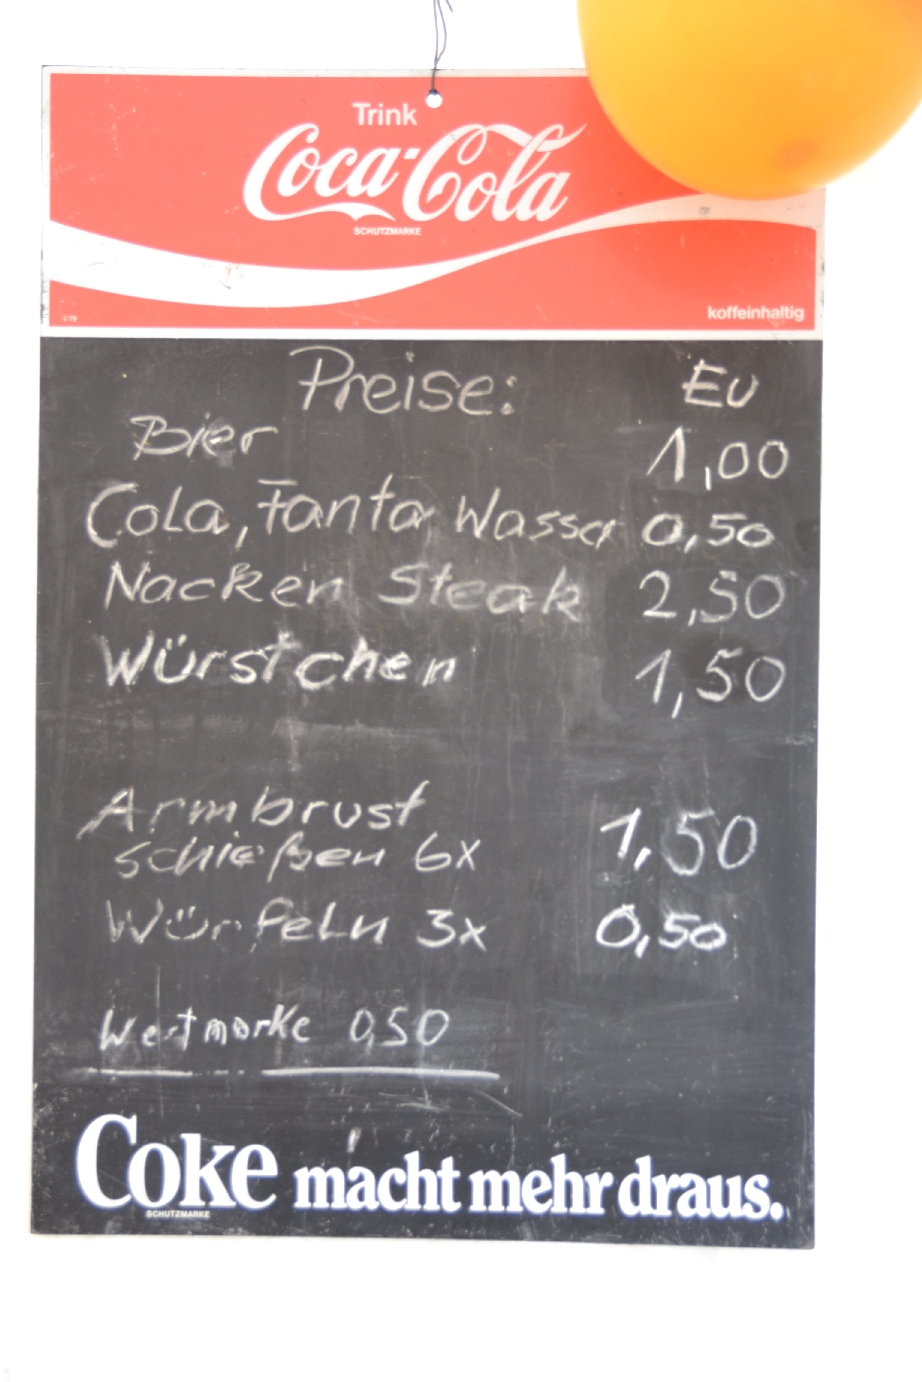 Trink
Coca-Cola
SCHUTZMARKE
koffeinhaltig
Preise: EU
Bier 1,00
Cola, Fanta Wasser 0,50
Nacken Steak 2,50
Würstchen 1,50
Armbrust
schießen 6x 1,50
Würfeln 3x 0,50
Wertmarke 0,50
Coke macht mehr draus.
SCHUTZMARKE